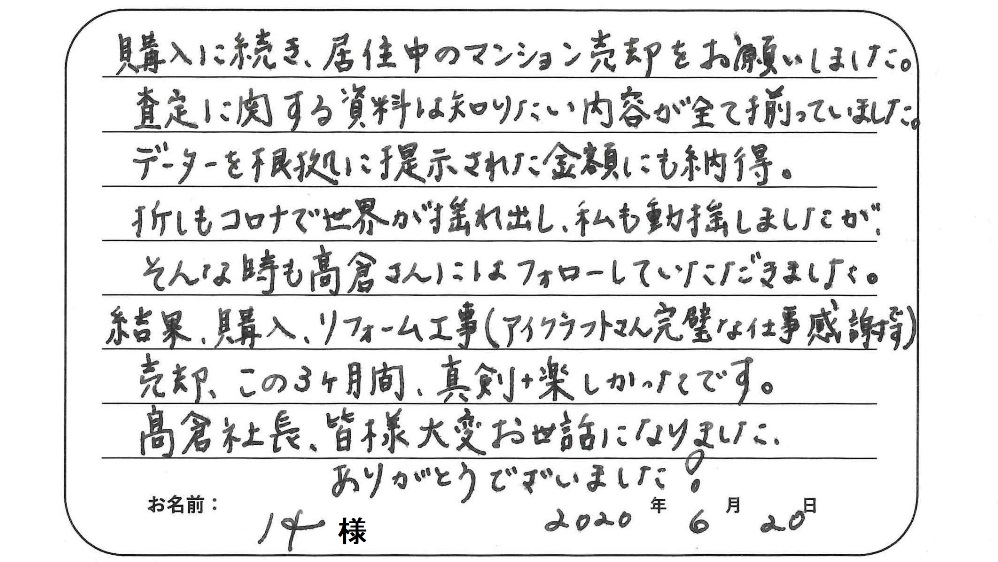 購入に続き、居住中のマンション売却をお願いしました。
査定に関する資料は知りたい内容が全て揃っていました。
データーを根拠に提示された金額にも納得。
折しもコロナで世界が揺れ出し、私も動揺しましたが、
そんな時も髙倉さんにはフォローしていただきました。
結果、購入、リフォーム工事(アイクラフトさん完璧な仕事感謝)
売却、この3ヶ月間、真剣+楽しかったです。
髙倉社長、皆様大変お世話になりました、
ありがとうでざいました!
お名前: 様 2020年6月20日